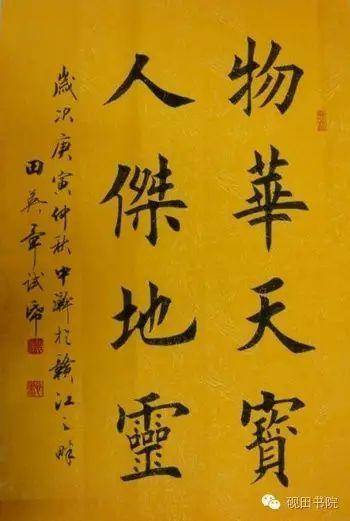 物華天寶
人傑地靈
歲次庚寅仲秋中澣於贛江之畔
田英章試筆
砚田书院